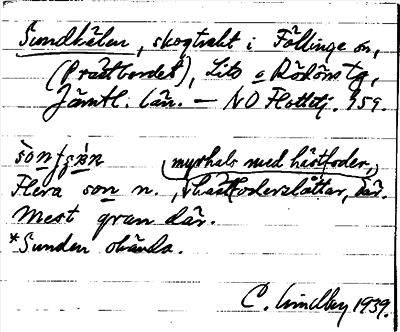 Sundkälen, skogtrakt i Föllinge sn,
(Prästbordet), Lits o Rödöns tg,
Jämtl. län. — NO Flottsj. 959.
myrhals med hästfoder,
Flera son n., hästfoderslåttar, där.
Mest gran där.
*Sunden okända.
C. Lindby 1939.